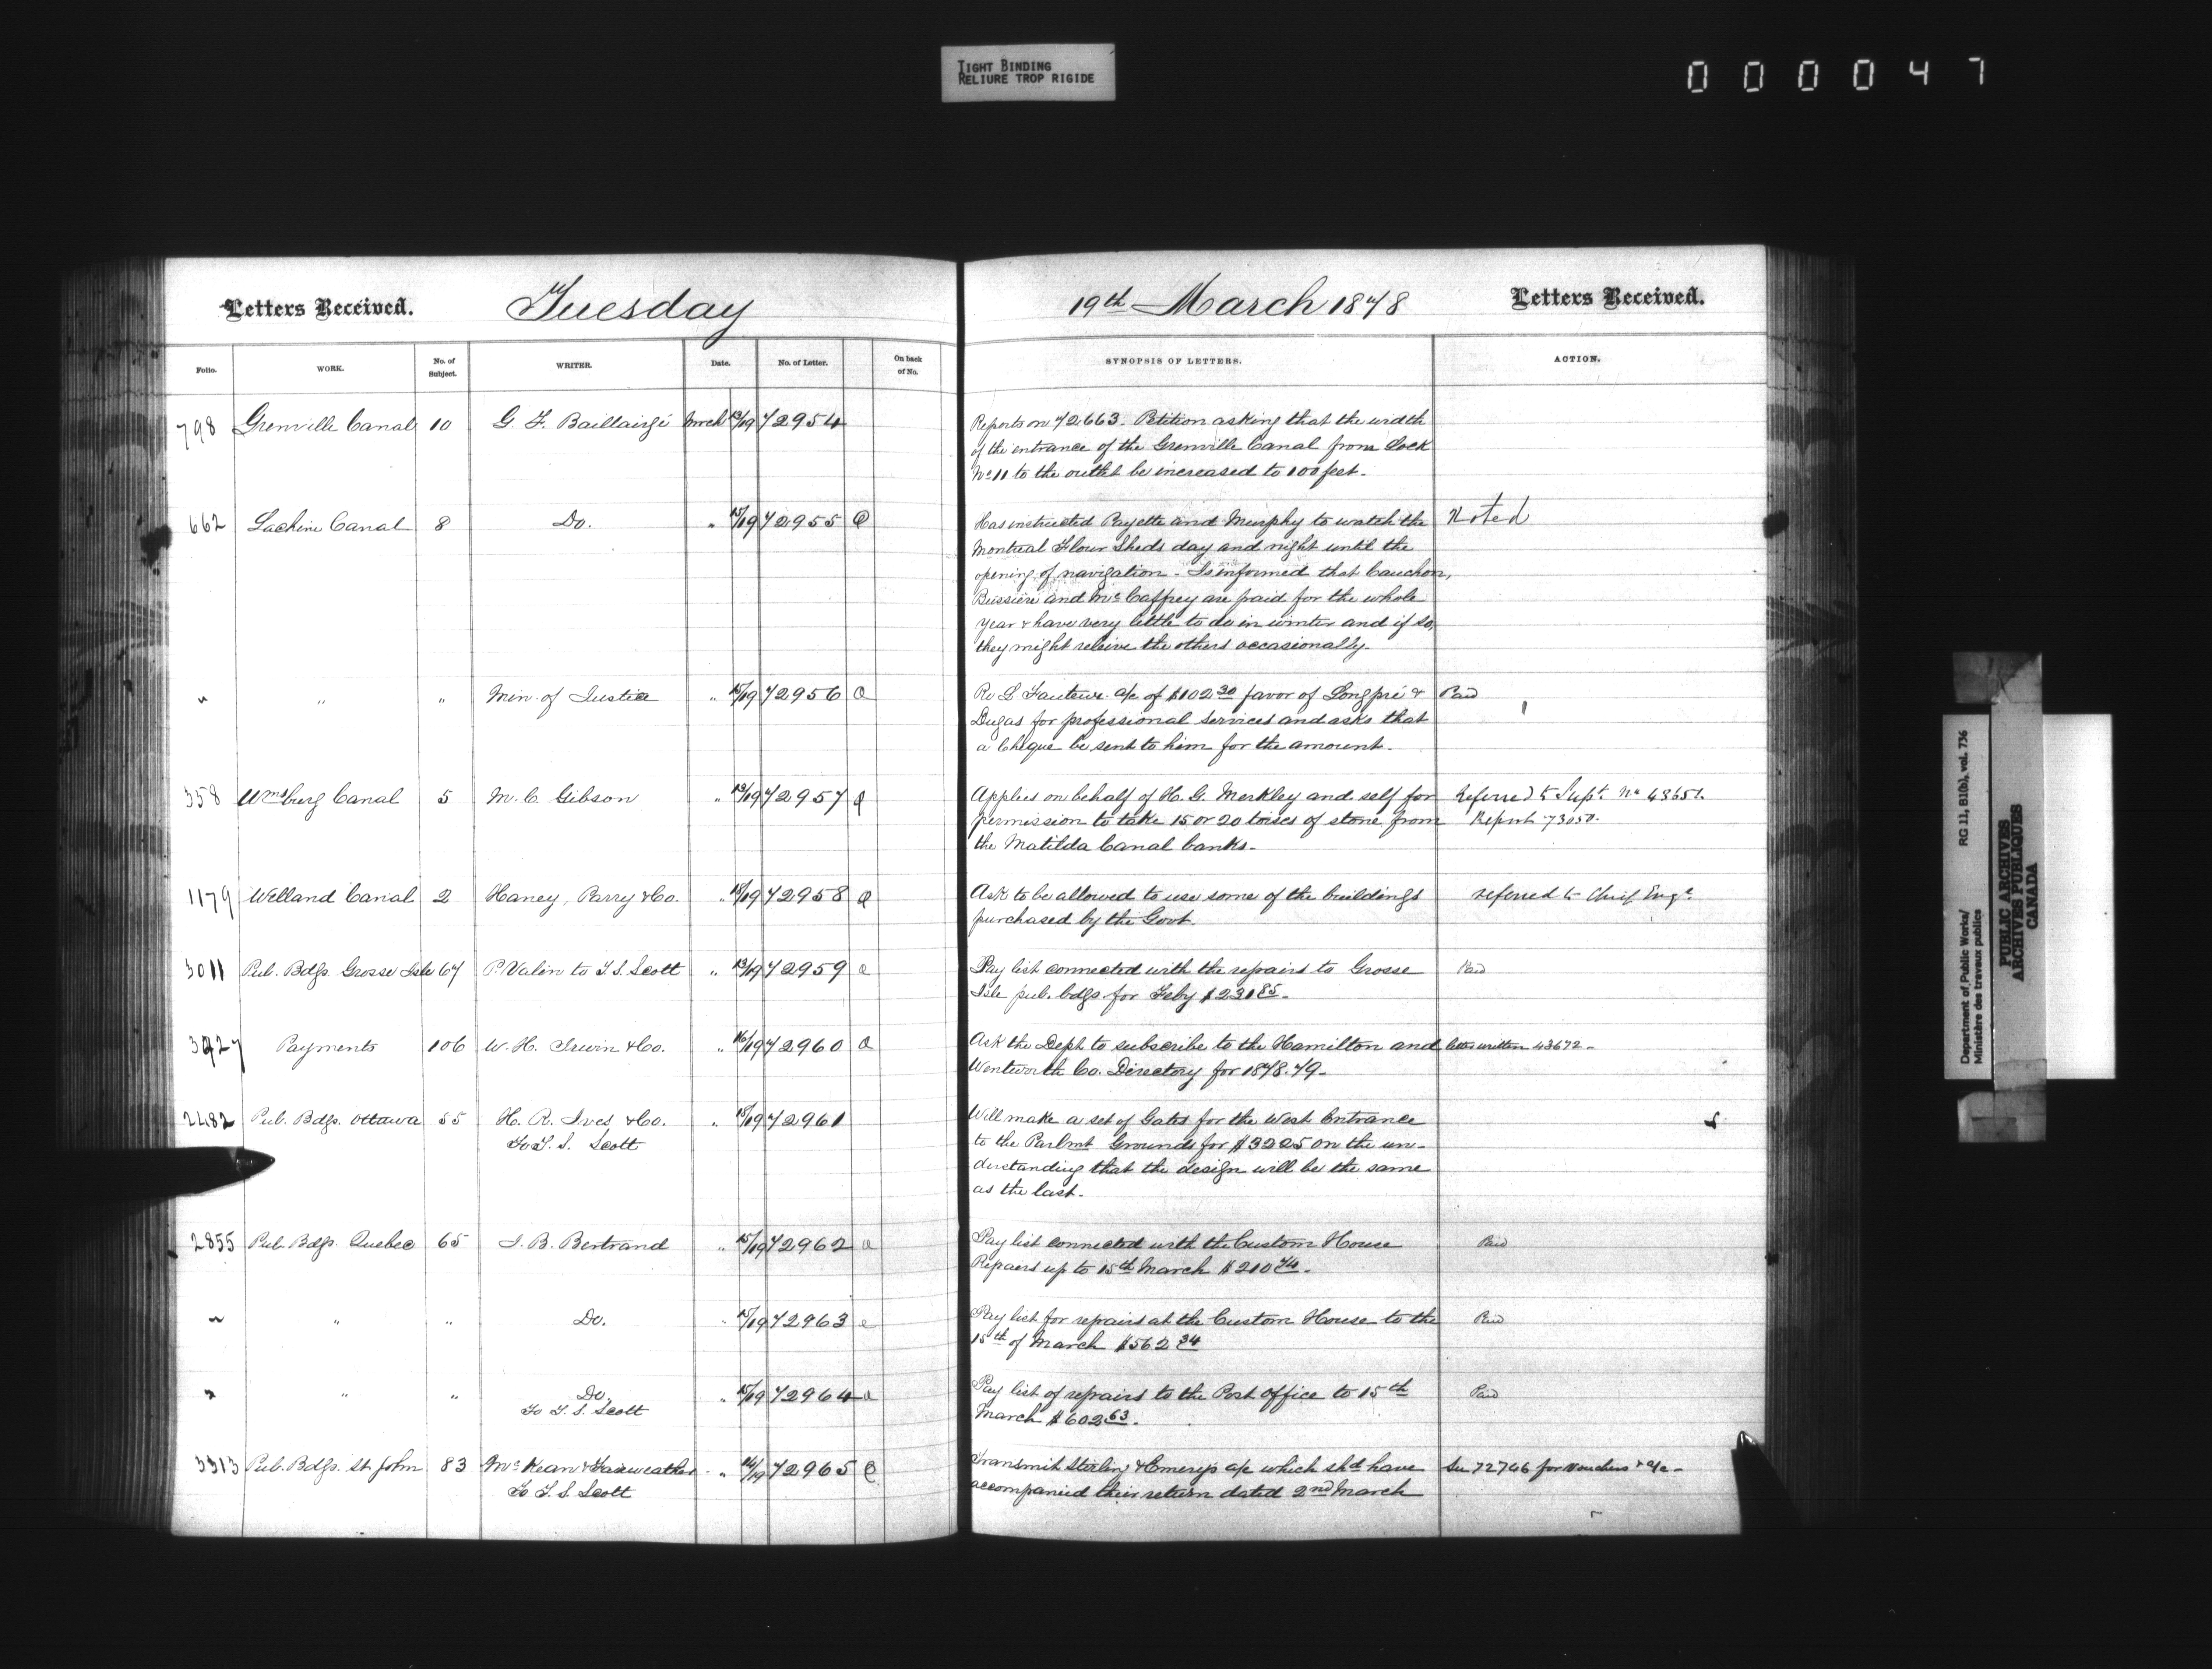 TIGHT BINDING
RELIURE TROP RIGIDE
000047
Letters Received. Tuesday 19th March 1878 Letters Received.
Folio. WORK. No. of Subject. WRITER. Date. No. of Letter. On back of No. SYNOPSIS OF LETTERS. ACTION.
798 Grenville Canal 10 G. F. Baillairgé Mrch 13/19 72954
Reports on 72663. Petition asking that the width
of the entrance of the Grenville Canal from Lock
No 11 to the outlet be increased to 100 feet.
662 Lachine Canal 8 Do. " 15/19 72955 Q
Has instructed Payette and Murphy to watch the Noted
Montreal Flour Sheds day and night until the
opening of navigation. Is informed that Cauchon,
Bussière and McCaffrey are paid for the whole
year & have very little to do in winter and if so,
they might releive the others occasionally.
" " " Min. of Justice " 15/19 72956 Q
Re L. Fauteux a/c of $102.30 favor of Longpré & Paid
Dugas for professional services and asks that
a Cheque be sent to him for the amount.
358 Wmsburg Canal 5 M. C. Gibson " 13/19 72957 Q
Applies on behalf of H. G. Merkley and self for Referred to Supt. No 43651.
permission to take 15 or 20 toises of stone from Report 73050.
the Matilda Canal banks.
1179 Welland Canal 2 Haney, Parry & Co. " 18/19 72958 Q
Ask to be allowed to use some of the buildings referred to Chief Engr.
purchased by the Govt.
3011 Pub. Bdgs. Grosse Isle 67 P. Valin to T. S. Scott " 13/19 72959 Q
Pay list connected with the repairs to Grosse Paid
Isle pub. bdgs for Feby $231.85.
3927 Payments 106 W. H. Irwin & Co. " 16/19 72960 Q
Ask the Dept to subscribe to the Hamilton and letter written 43672.
Wentworth Co. Directory for 1878.79.
2482 Pub. Bdgs. Ottawa 55 H. R. Ives & Co. " 18/19 72961
To T. S. Scott
Will make a set of Gates for the West Entrance
to the Parlmt Grounds for $3225 on the un-
derstanding that the design will be the same
as the last.
2855 Pub. Bdgs. Quebec 65 J. B. Bertrand " 15/19 72962 Q
Pay list connected with the Custom House Paid
Repairs up to 15th March $210.74.
" " " Do. " 15/19 72963 Q
Pay list for repairs at the Custom House to the Paid
15th of March $562.34
" " " Do. " 15/19 72964 Q
To T. S. Scott
Pay list of repairs to the Post Office to 15th Paid
March $602.63.
3313 Pub. Bdgs. St John 83 McKean & Fairweather " 16/19 72965 Q
To T. S. Scott
Transmit Stirling & Emerys a/c which shd have See 72746 for Vouchers & a/c.
accompanied their return dated 2nd March
Department of Public Works/ RG 11, B1(a), vol. 736
Ministère des travaux publics
PUBLIC ARCHIVES
ARCHIVES PUBLIQUES
CANADA